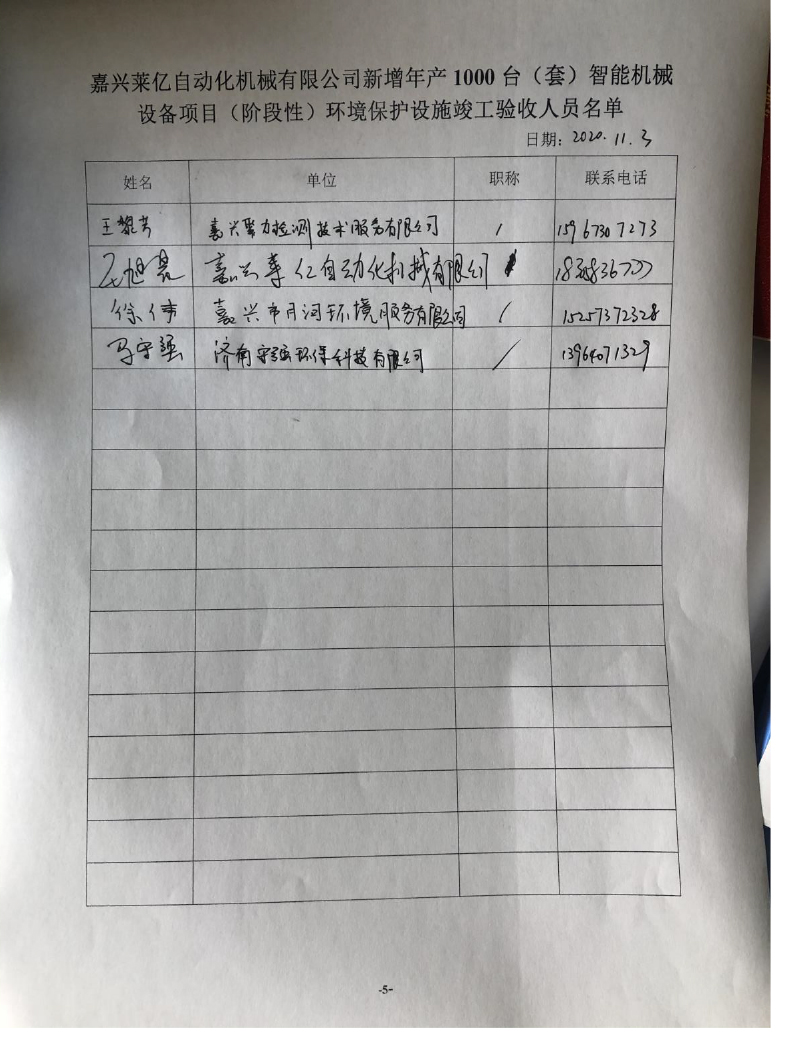 嘉兴莱亿自动化机械有限公司新增年产 1000 台（套）智能机械
设备项目（阶段性）环境保护设施竣工验收人员名单
日期：2020.11.3
姓名 单位 职称 联系电话
王黎芳 嘉兴聚力检测技术服务有限公司 / 15967307273
旭亮 嘉兴莱亿自动化机械有限公司
徐伟 嘉兴市月河环境服务有限公司 / 15257372328
马守强 济南守强环保科技有限公司 / 13964071329
-5-